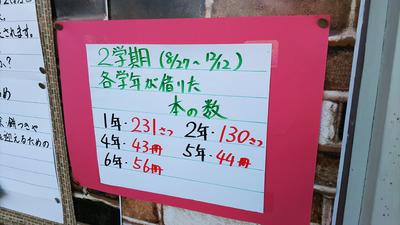 2学期(8/27〜12/12)
各学年が借りた
本の数
1年・231さつ 2年・130さつ
4年・43冊 5年・44冊
6年・56冊
されます。
か?
め